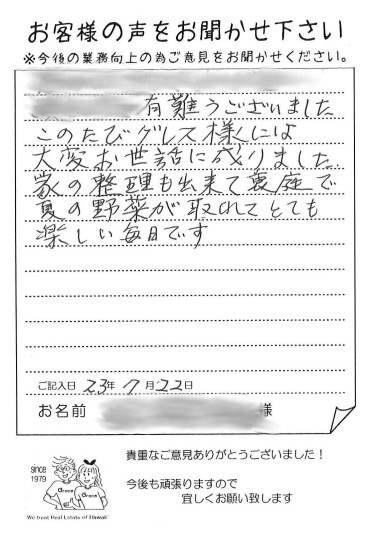 お客様の声をお聞かせ下さい
※今後の業務向上の為ご意見をお聞かせください。
有難うございました
このたびグレス様には
大変お世話に成りました
家の整理も出来て裏庭で
夏の野菜が取れてとても
楽しい毎日です
ご記入日 23年 7月22日
お名前 様
貴重なご意見ありがとうございました！
今後も頑張りますので
宜しくお願い致します
since
1979
Grace
Grace
We treat Real Estate of Hawaii